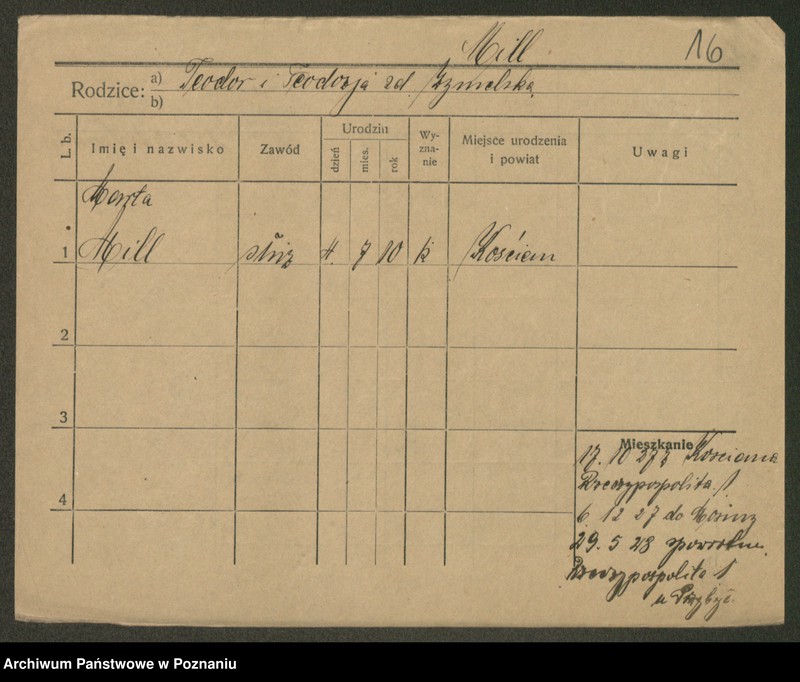 Mill 16
Rodzice: a) Teodor i Teodozja zd.
b)
L. b. Imię i nazwisko Zawód Urodzin dzień mies. rok Wyznanie Miejsce urodzenia i powiat Uwagi
Marta
1 Mill służ 4. 7 10 k Kościan
2
3
Mieszkanie
17. 10 27 z Kościana
Rzeczypospolita 1
4
6. 12 27 do
29. 5 28
Rzeczypospolita 1
u
Archiwum Państwowe w Poznaniu